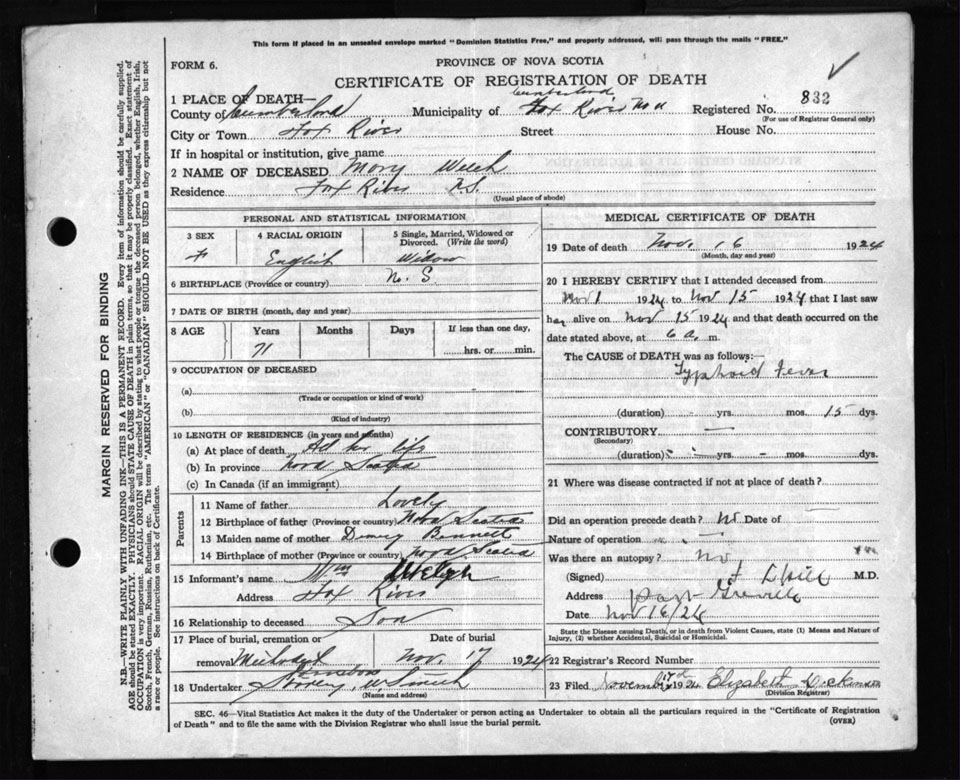 This form if placed in an unsealed envelope marked "Dominion Statistics Free," and properly addressed, will pass through the mails "FREE."
FORM 6.
PROVINCE OF NOVA SCOTIA
CERTIFICATE OF REGISTRATION OF DEATH
1 PLACE OF DEATH—
Cumberland
County of Cumberland Municipality of Fox River No 11 Registered No. 832
(For use of Registrar General only)
City or Town Fox River Street House No.
If in hospital or institution, give name
2 NAME OF DECEASED Mary Welsh
Residence Fox River N.S.
(Usual place of abode)
PERSONAL AND STATISTICAL INFORMATION
3 SEX 4 RACIAL ORIGIN 5 Single, Married, Widowed or Divorced. (Write the word)
F English Widow
6 BIRTHPLACE (Province or country) N. S
7 DATE OF BIRTH (month, day and year)
8 AGE Years Months Days If less than one day,
71 hrs. or min.
9 OCCUPATION OF DECEASED
(a)
(Trade or occupation or kind of work)
(b)
(Kind of industry)
10 LENGTH OF RESIDENCE (in years and months)
(a) At place of death All her life
(b) In province Nova Scotia
(c) In Canada (if an immigrant)
Parents
11 Name of father Lovely
12 Birthplace of father (Province or country) Nova Scotia
13 Maiden name of mother Bennett
14 Birthplace of mother (Province or country) Nova Scotia
15 Informant's name Wm Welsh
Address Fox River
16 Relationship to deceased Son
17 Place of burial, cremation or removal Date of burial
Nov. 17 1924
18 Undertaker
(Name and address)
MEDICAL CERTIFICATE OF DEATH
19 Date of death Nov. 16 1924
(Month, day and year)
20 I HEREBY CERTIFY that I attended deceased from
Nov 1 1924 to Nov 15 1924 that I last saw
her alive on Nov 15 1924 and that death occurred on the
date stated above, at 6 a. m.
The CAUSE of DEATH was as follows:—
Typhoid Fever
(duration) yrs. mos. 15 dys.
CONTRIBUTORY
(Secondary)
(duration) yrs. mos. dys.
21 Where was disease contracted if not at place of death?
Did an operation precede death? No Date of
Nature of operation
Was there an autopsy? No
(Signed) Hill M.D.
Address Port Greville
Date Nov 16/24
State the Disease causing Death, or in death from Violent Causes, state (1) Means and Nature of Injury, (2) whether Accidental, Suicidal or Homicidal.
22 Registrar's Record Number
23 Filed November 17th 1924 Elizabeth Dickinson
(Division Registrar)
SEC. 46—Vital Statistics Act makes it the duty of the Undertaker or person acting as Undertaker to obtain all the particulars required in the "Certificate of Registration
of Death" and to file the same with the Division Registrar who shall issue the burial permit.
(OVER)
MARGIN RESERVED FOR BINDING
N.B.—WRITE PLAINLY WITH UNFADING INK—THIS IS A PERMANENT RECORD. Every item of information should be carefully supplied.
AGE should be stated EXACTLY. PHYSICIANS should STATE CAUSE OF DEATH in plain terms, so that it may be properly classified. Exact statement of
OCCUPATION is very important. RACIAL ORIGIN will be described by stating to what people or tongue the deceased person belonged, whether English, Irish,
Scotch, French, German, Russian, Ruthenian, etc. The terms "AMERICAN" or "CANADIAN" SHOULD NOT BE USED as they express citizenship but not
a race or people. See instructions on back of Certificate.